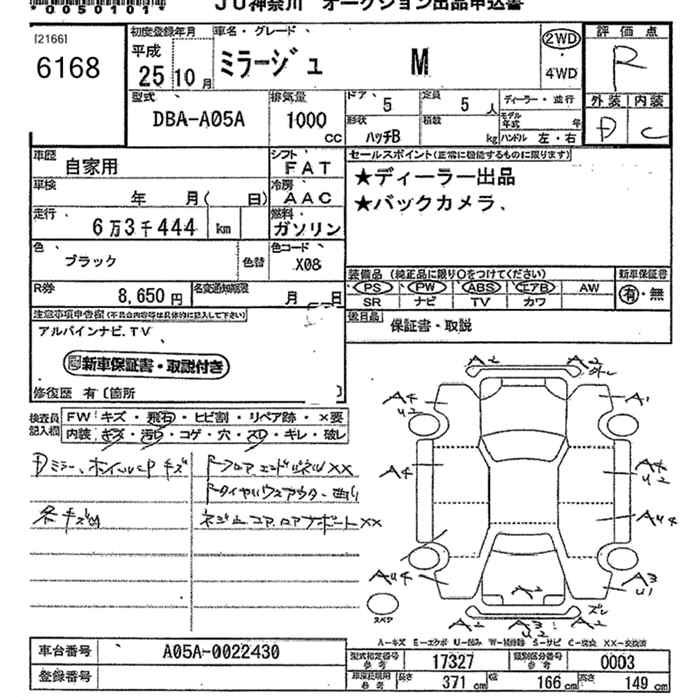 *0050101*
JU神奈川 オークション出品申込書
[2166]
6168
初度登録年月
平成
25 10 月
車名・グレード
ミラージュ M
2WD
・
4WD
評価点
R
外装 内装
D C
型式
DBA-A05A
排気量
1000
CC
ドア
5
定員
5 人
形状
ハッチB
積数
kg
ディーラー・並行
モデル年式 年
ハンドル 左・右
車歴
自家用
シフト
FAT
車検
年 月( 日)
冷房
AAC
走行
6万3千444 km
燃料
ガソリン
色
ブラック
色替
色コード
X08
R券
8,650 円
名変通知期限
月 日
セールスポイント(正常に機能するものに限ります)
★ディーラー出品
★バックカメラ、
装備品(純正品に限り○をつけてください)
新車保証書
PS PW ABS エアB AW
SR ナビ TV カワ
有・無
後日品
保証書・取説
注意事項申告欄(不具合内容等は具体的に記入して下さい)
アルパインナビ.TV
新車保証書・取説付き
修復歴 有〔箇所 〕
検査員記入欄
FW キズ・飛石・ヒビ割・リペア跡・×要
内装 キズ・汚レ・コゲ・穴・スレ・キレ・破レ
Dミラー、ホイルCP キズ
各キズ凹
A2 A2
A4
U2
A1
A4
A4
U2
AU4
AU4
A3
U1
A2
A2 A3 A2
U2
ズレ
スペア
A-キズ E-エクボ U-凹み W-補修跡 S-サビ C-腐食 XX-交換済
車台番号
A05A-0022430
登録番号
型式指定番号
参考
17327
類別区分番号
参考
0003
車検証明用
参考
長さ
371 cm
幅
166 cm
高さ
149 cm